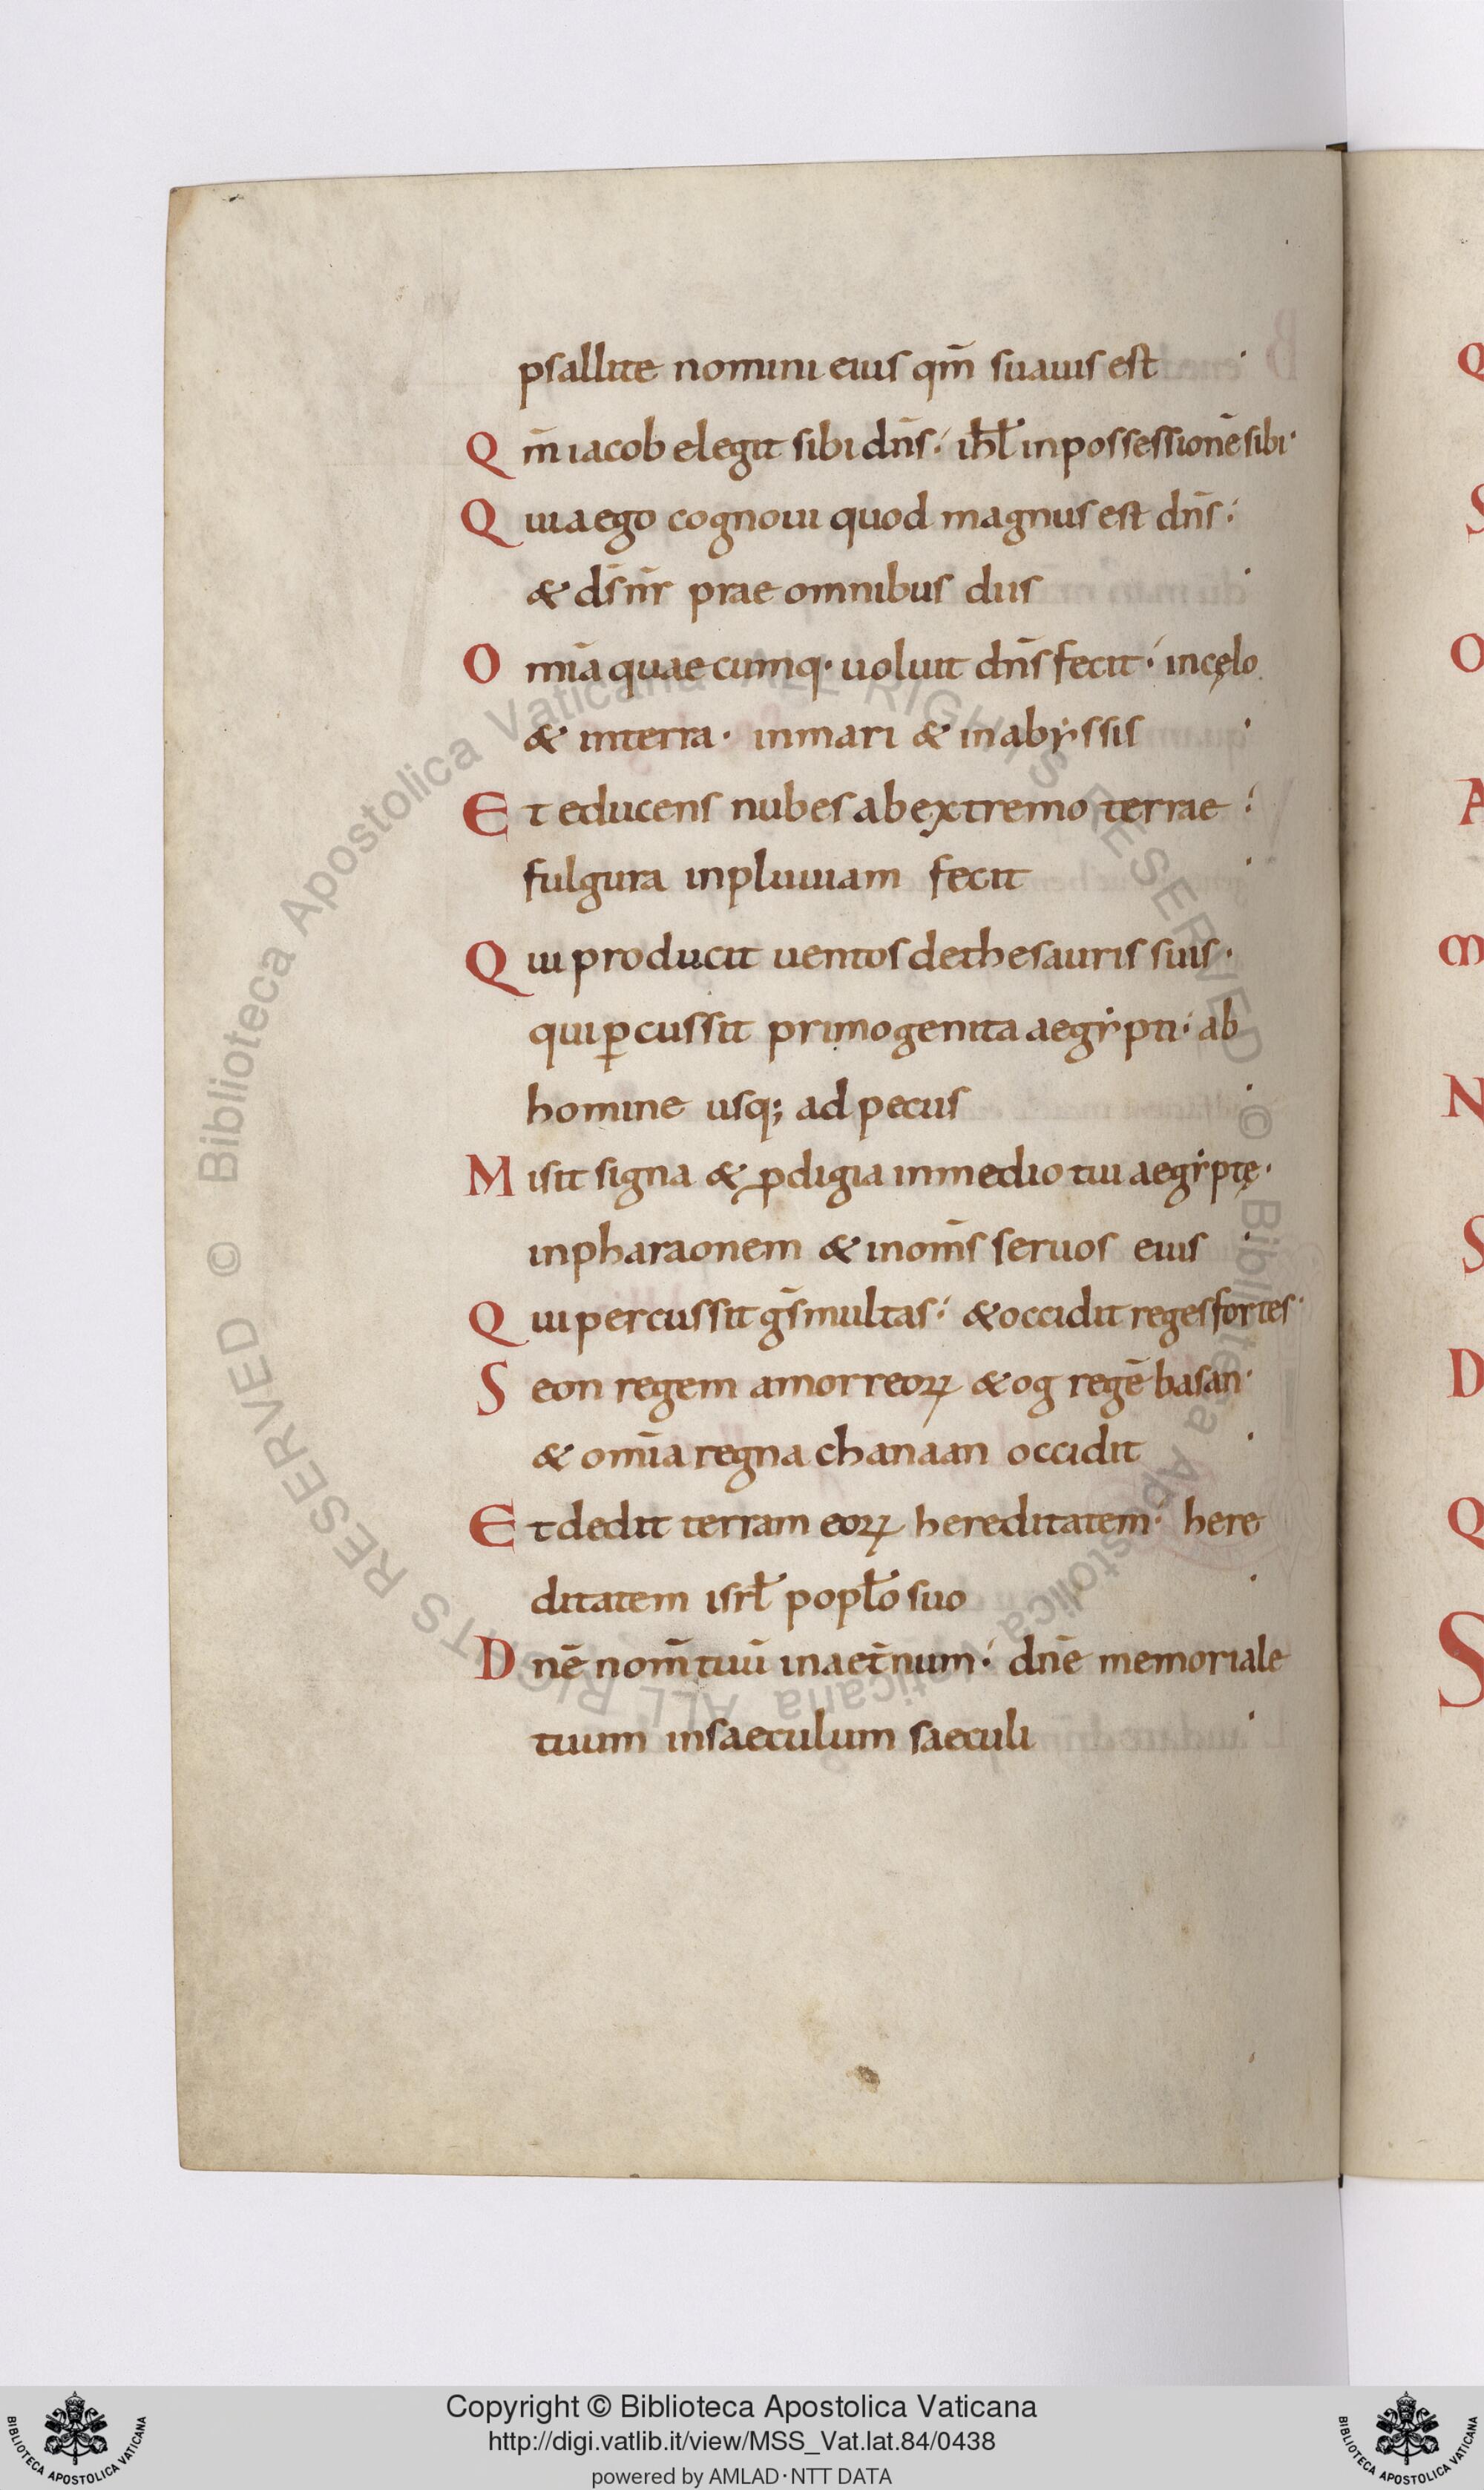 psallite nomini eius qm̄ suauis est ·
Q m̄ iacob elegit sibi dn̄s· ihl̄ in possessionē sibi·
Q uia ego cognoui quod magnus est dn̄s·
& ds̄ nr̄ prae omnibus diis ·
O mīa quaecumq· uoluit dn̄s fecit· in cęlo
& in terra· in mari & in abẏssis ·
E t educens nubes ab extremo terrae :
fulgura in pluuiam fecit ·
Q ui producit uentos de thesauris suis·
qui ꝑcussit primogenita aegẏpti· ab
homine usq; ad pecus ·
M isit signa & ꝓdigia in medio tui aegẏptę·
in pharaonem & in om̄s seruos eius ·
Q ui percussit gs̄ multas· & occidit reges fortes·
S eon regem amorreoꝝ & og regē basan·
& omīa regna chanaan occidit ·
E t dedit terram eoꝝ hereditatem· here
ditatem isrl̄ popl̄o suo ·
D nē nom̄ tuū in aet̄num· dnē memoriale
tuum in saeculum saeculi ·
Q
S
O
A
M
N
S
D
Q
S
© Biblioteca Apostolica Vaticana ALL RIGHTS RESERVED © Biblioteca Apostolica Vaticana ALL RIGHTS RESERVED
BIBLIOTECA APOSTOLICA VATICANA
Copyright © Biblioteca Apostolica Vaticana
http://digi.vatlib.it/view/MSS_Vat.lat.84/0438
powered by AMLAD·NTT DATA
BIBLIOTECA APOSTOLICA VATICANA